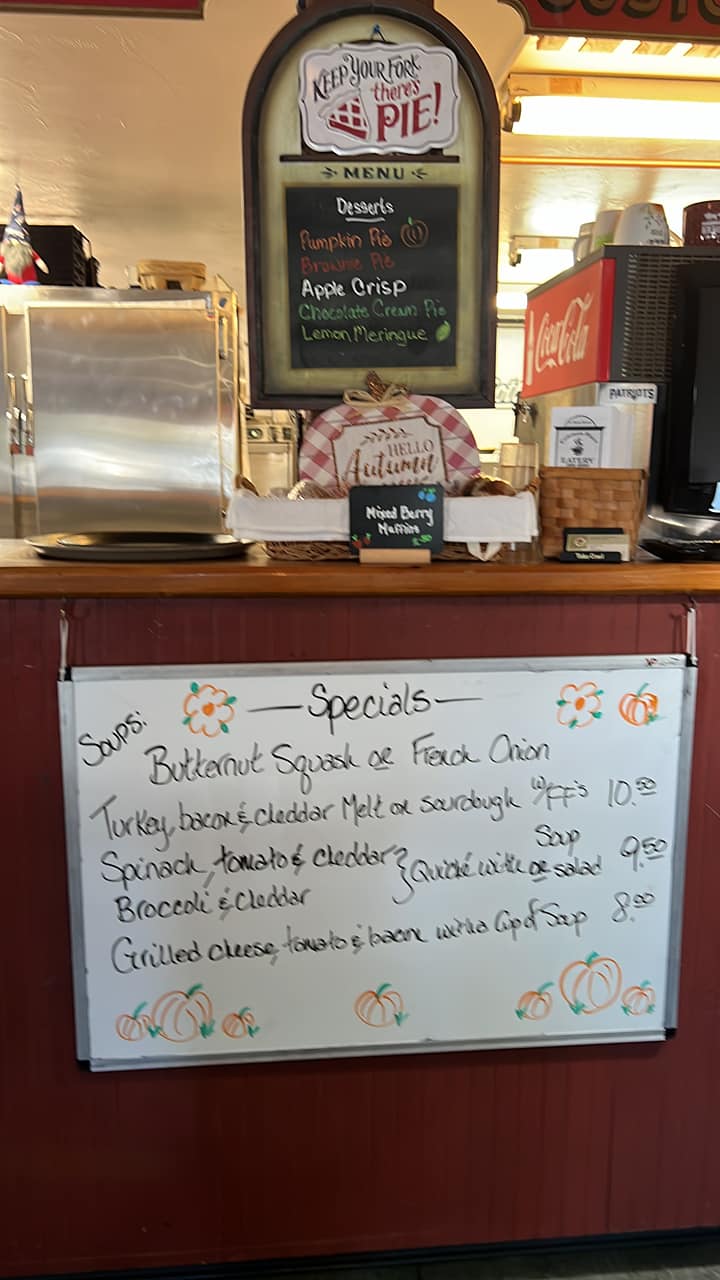 KEEP YOUR FORK
there's
PIE!
MENU
Desserts
Pumpkin Pie
Brownie Pie
Apple Crisp
Chocolate Cream Pie
Lemon Meringue
Coca-Cola
PATRIOTS
EATERY
HELLO
Autumn
Mixed Berry
Muffins
Take One!
Soups:
—Specials—
Butternut Squash or French Onion
Turkey, bacon & cheddar Melt on sourdough w/FF's 10.50
Spinach, tomato & cheddar } Quiche with Soup or salad 9.50
Broccoli & cheddar
Grilled cheese, tomato & bacon with a Cup of Soup 8.00